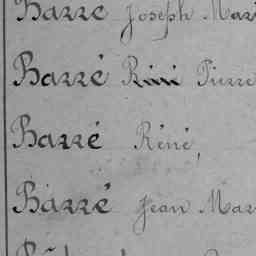 Barré Joseph Mar
Barré Pierre
Barré Réné,
Barré Jean Mar